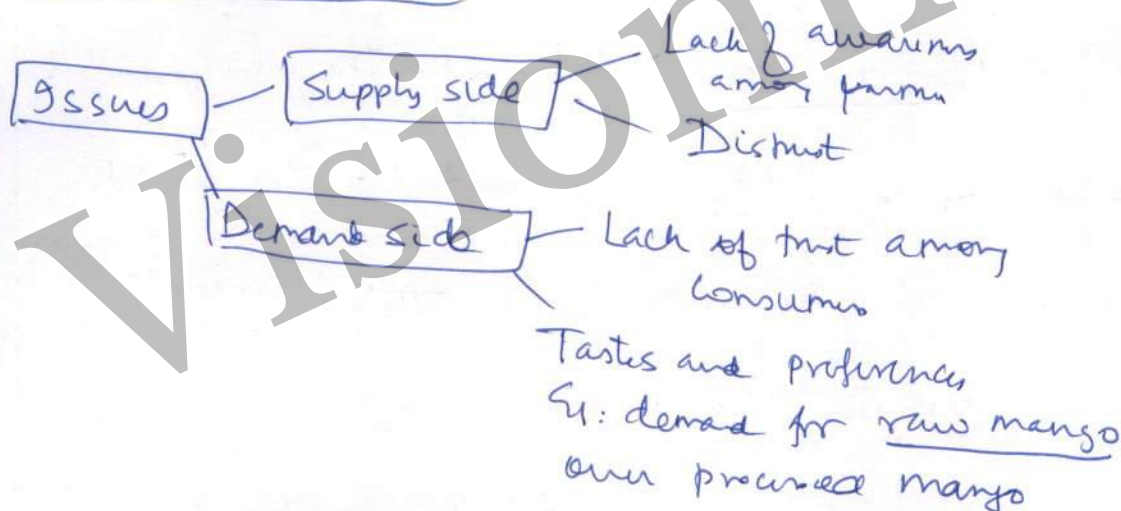 Issues
Supply side
Lack of awareness
among farmers
Distrust
Demand side
Lack of trust among
consumers
Tastes and preferences
Eg: demand for raw mango
over processed mango
Vision